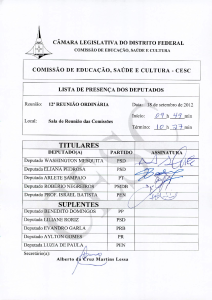 CÂMARA LEGISLATIVA DO DISTRITO FEDERAL
COMISSÃO DE EDUCAÇÃO, SAÚDE E CULTURA
COMISSÃO DE EDUCAÇÃO, SAÚDE E CULTURA - CESC
LISTA DE PRESENÇA DOS DEPUTADOS
Reunião: 12ª REUNIÃO ORDINÁRIA Data: 18 de setembro de 2012
Local: Sala de Reunião das Comissões
Início: 09 h 49 min
Término: 10 h 37 min
TITULARES
DEPUTADO(A) PARTIDO ASSINATURA
Deputado WASHINGTON MESQUITA PSD
Deputada ELIANA PEDROSA PSD
Deputada ARLETE SAMPAIO PT
Deputado ROBÉRIO NEGREIROS PMDB
Deputado PROF. ISRAEL BATISTA PEN
SUPLENTES
Deputado BENEDITO DOMINGOS PP
Deputada LILIANE RORIZ PSD
Deputado EVANDRO GARLA PRB
Deputado AYLTON GOMES PR
Deputada LUZIA DE PAULA PEN
Secretário(a):
Alberto da Cruz Martins Lessa